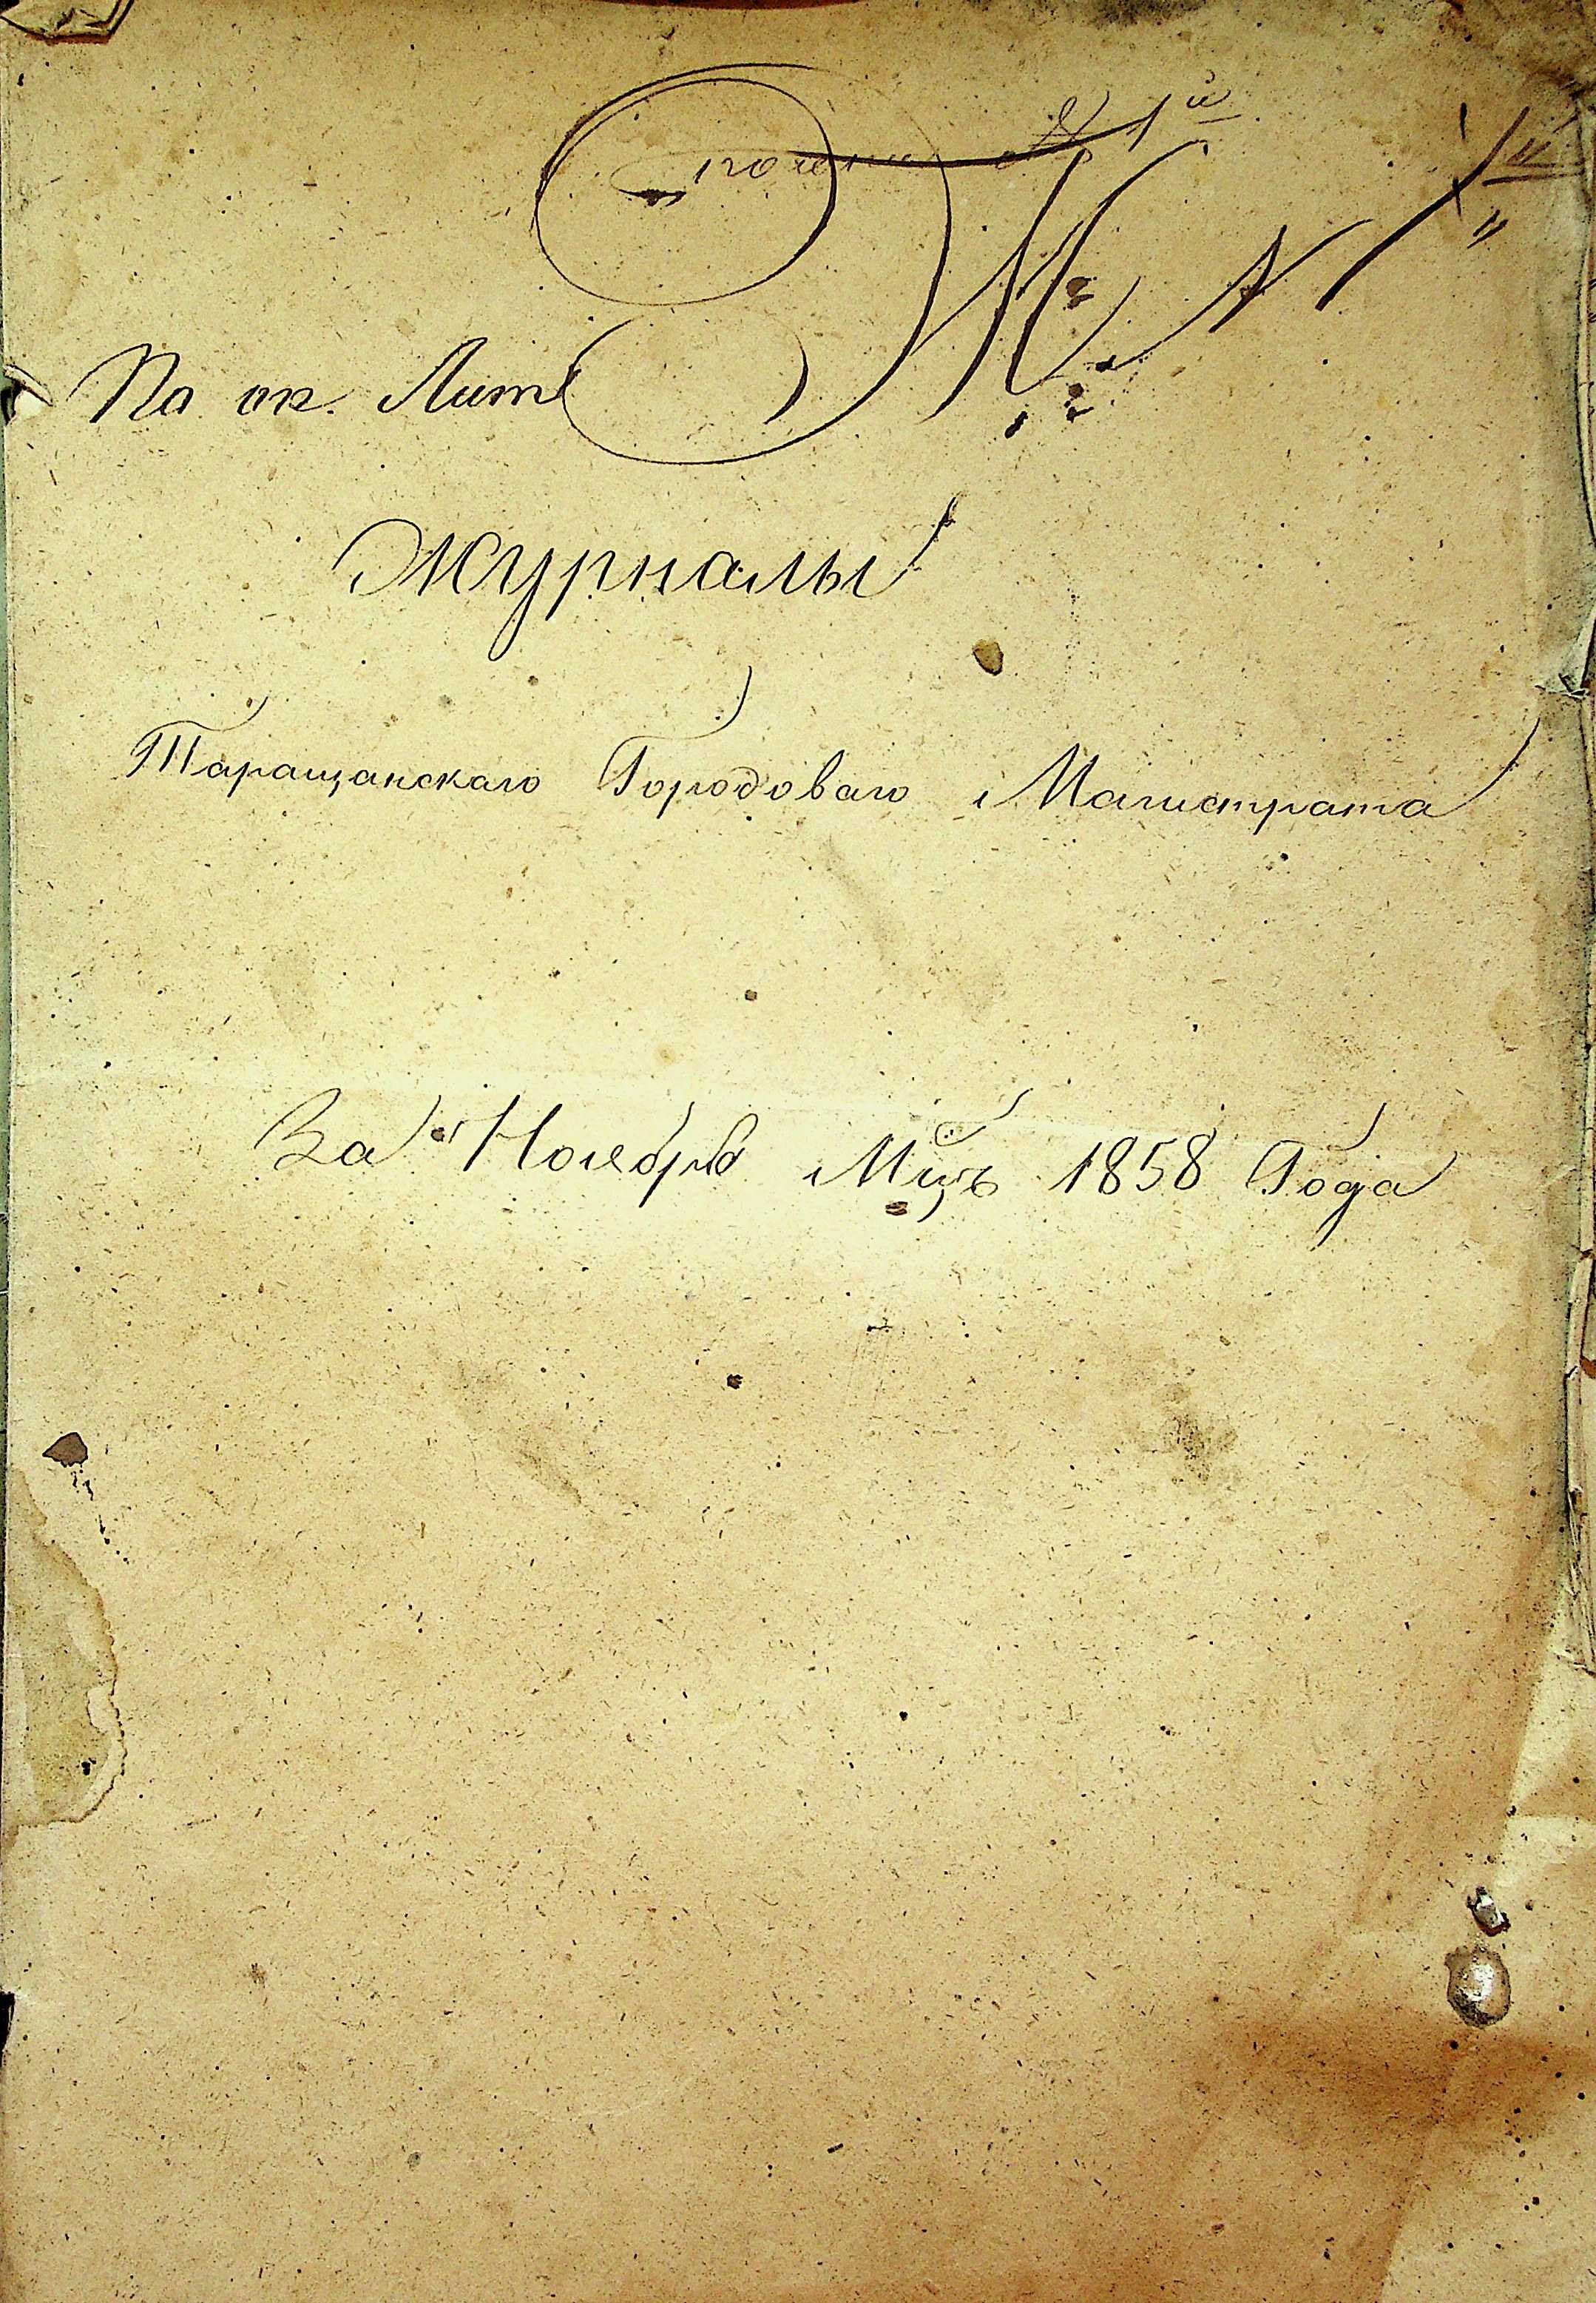 полка 1й
По оп. Лит. Ж. №
Журналы
Таращанскаго Городоваго Магистрата
За Ноябрь Мцъ 1858 Года